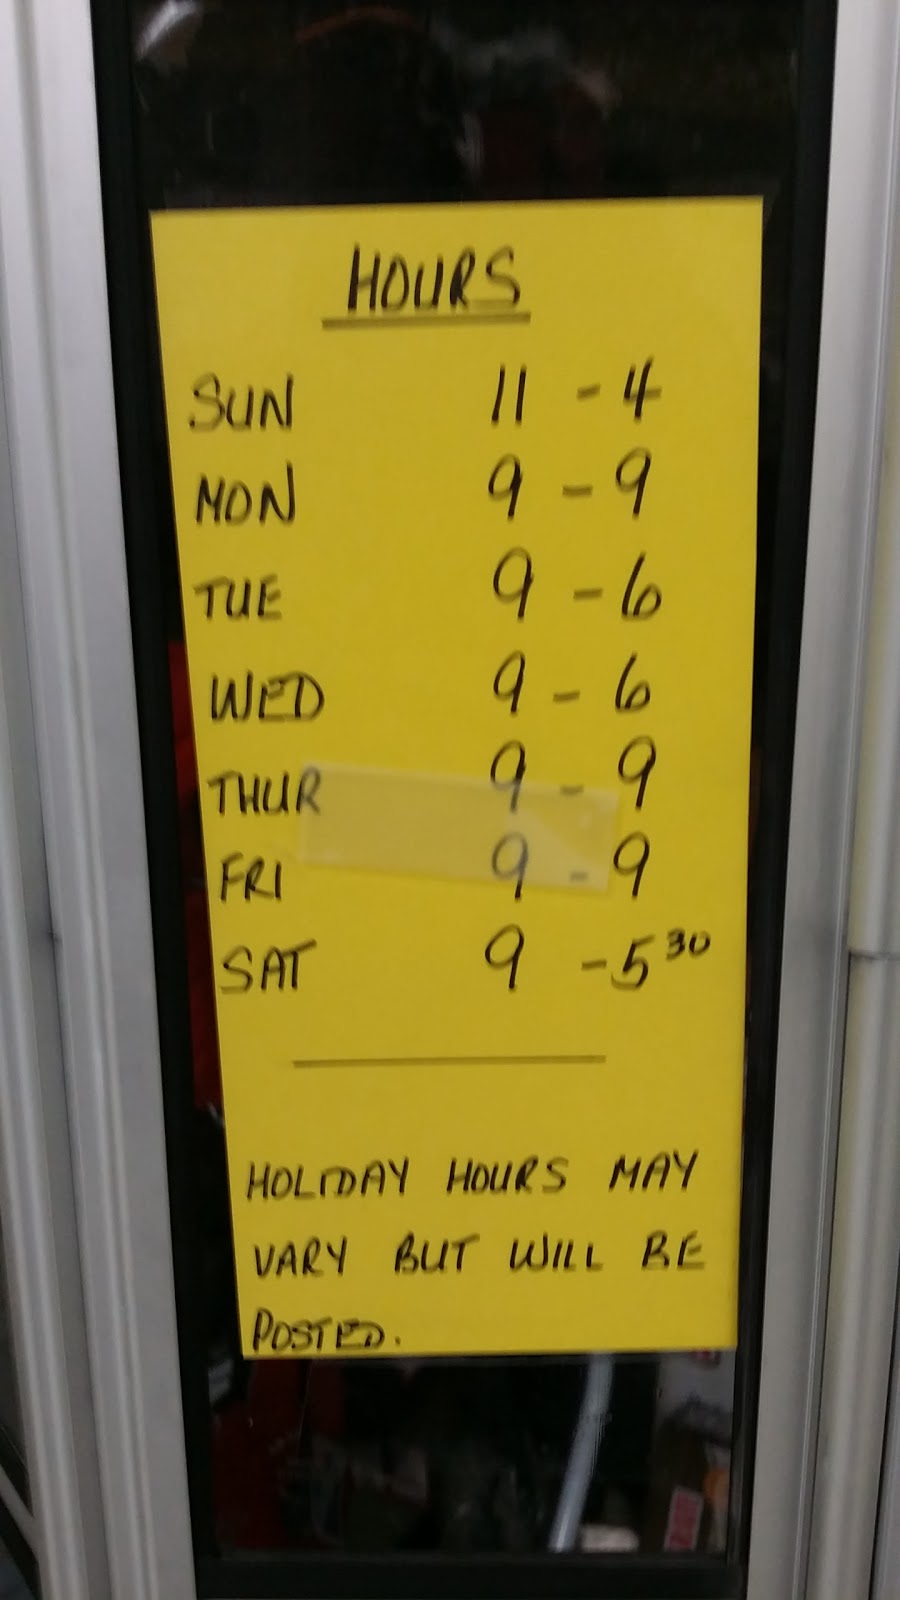 HOURS
SUN 11 - 4
MON 9 - 9
TUE 9 - 6
WED 9 - 6
THUR 9 - 9
FRI 9 - 9
SAT 9 - 5 30
HOLIDAY HOURS MAY
VARY BUT WILL BE
POSTED.